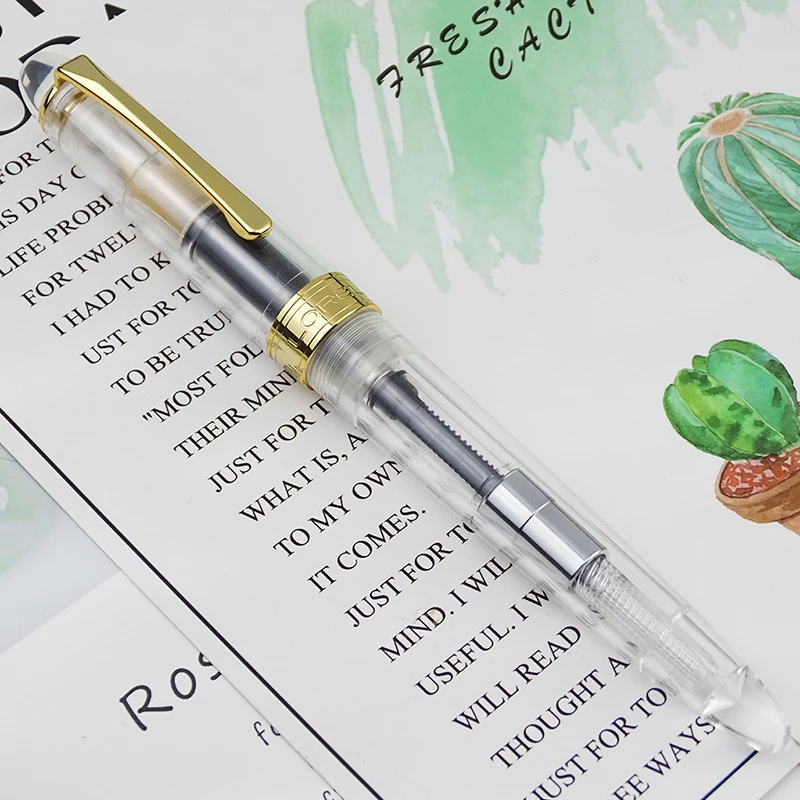 FRESH
CACT
FOR T
IS DAY
LIFE PROBL
FOR TWEL
I HAD TO K
UST FOR TO
TO BE TRU
"MOST FOL
THEIR MIND
JUST FOR T
WHAT IS, A
TO MY OWN
IT COMES.
JUST FOR TO
MIND. I WIL
USEFUL. I W
WILL READ
THOUGHT A
JUST FOR TO
EE WAYS
Ros
fo